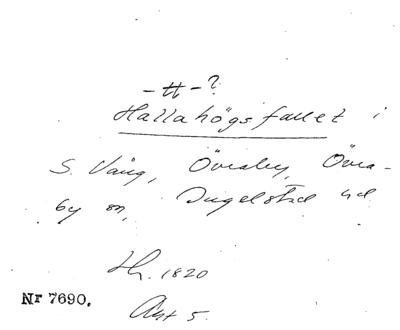 -tt-?
Hallahögsfallet i
S. Vång, Överaby, Övra-
by sn, Ingelstad hd
Hr. 1820
Nr 7690.
Akt 5.